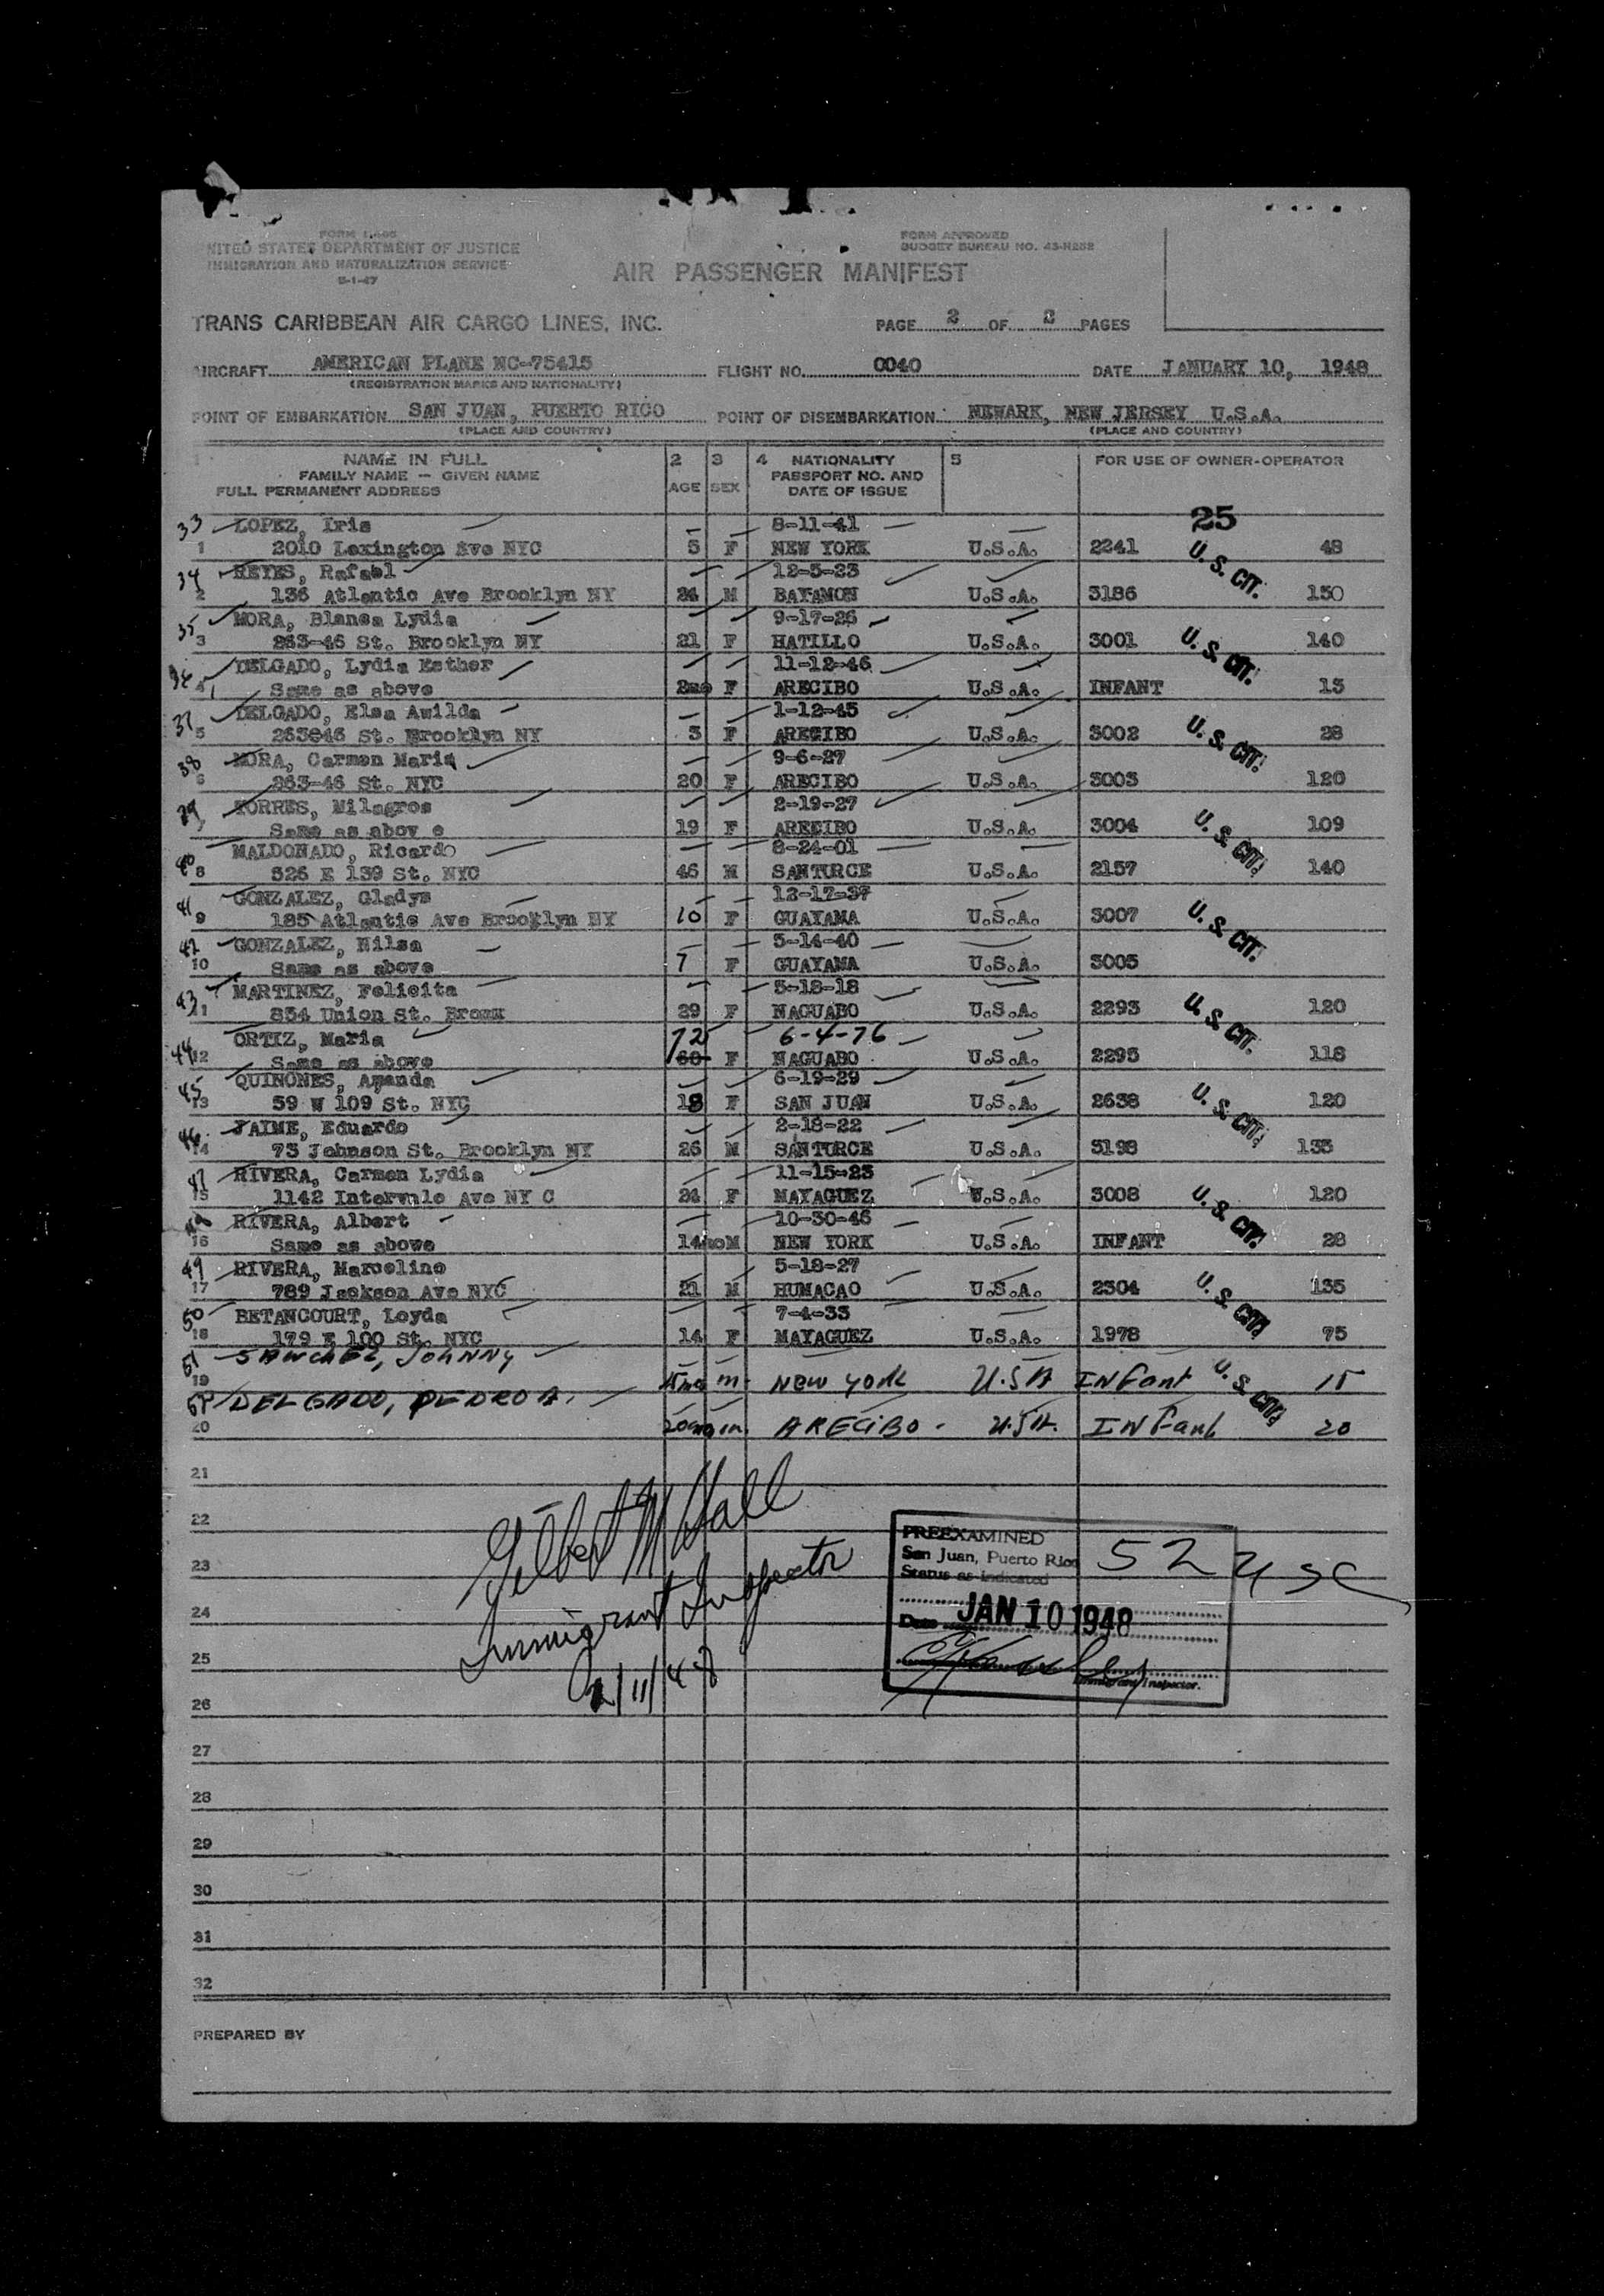 FORM I-466
NITED STATES DEPARTMENT OF JUSTICE
IMMIGRATION AND NATURALIZATION SERVICE
FORM APPROVED
BUDGET BUREAU NO. 43-R252
AIR PASSENGER MANIFEST
TRANS CARIBBEAN AIR CARGO LINES, INC.
PAGE 2 OF 2 PAGES
AIRCRAFT AMERICAN PLANE NC-75415 FLIGHT NO. 0040 DATE JANUARY 10, 1948
(REGISTRATION MARKS AND NATIONALITY)
POINT OF EMBARKATION SAN JUAN, PUERTO RICO POINT OF DISEMBARKATION NEWARK, NEW JERSEY U.S.A.
(PLACE AND COUNTRY) (PLACE AND COUNTRY)
1 NAME IN FULL 2 3 4 NATIONALITY 5 FOR USE OF OWNER-OPERATOR
FAMILY NAME — GIVEN NAME PASSPORT NO. AND
FULL PERMANENT ADDRESS AGE SEX DATE OF ISSUE
25
33 LOPEZ, Iris 8-11-41
1 2010 Lexington Ave NYC 5 F NEW YORK U.S.A. 2241 U. S. CIT. 48
34 REYES, Rafael 12-5-23
2 136 Atlantic Ave Brooklyn NY 24 M BAYAMON U.S.A. 3186 150
35 MORA, Blanca Lydia 9-17-26
3 263-46 St. Brooklyn NY 21 F HATILLO U.S.A. 3001 U. S. CIT. 140
36 DELGADO, Lydia Esther 11-12-46
4 Same as above F ARECIBO U.S.A. INFANT 13
37 DELGADO, Elsa Awilda 1-12-45
5 263@46 St. Brooklyn NY 3 F ARECIBO U.S.A. 3002 U. S. CIT. 28
38 MORA, Carmen Maria 9-6-27
6 263-46 St. NYC 20 F ARECIBO U.S.A. 3003 120
39 TORRES, Milagros 2-19-27
Same as abov e 19 F ARECIBO U.S.A. 3004 U. S. CIT. 109
40 MALDONADO, Ricardo 8-24-01
8 526 E 139 St. NYC 46 M SANTURCE U.S.A. 2157 140
41 GONZALEZ, Gladys 12-17-37
9 185 Atlantic Ave Brooklyn NY 10 F GUAYAMA U.S.A. 3007 U. S. CIT.
42 GONZALEZ, Nilsa 5-14-40
10 Same as above 7 F GUAYAMA U.S.A. 3005
43 MARTINEZ, Felicita 5-18-18
11 834 Union St. Bronx 29 F NAGUABO U.S.A. 2293 U. S. CIT. 120
44 ORTIZ, Maria 72 6-4-76
12 Same as above 60 F NAGUABO U.S.A. 2295 118
45 QUINONES, Amanda 6-19-29
13 59 W 109 St. NYC 18 F SAN JUAN U.S.A. 2638 U. S. CIT. 120
46 JAIME, Eduardo 2-18-22
14 73 Johnson St. Brooklyn NY 26 M SANTURCE U.S.A. 3198 135
47 RIVERA, Carmen Lydia 11-15-23
15 1142 Intervale Ave NY C 24 F MAYAGUEZ U.S.A. 3008 U. S. CIT. 120
48 RIVERA, Albert 10-30-46
16 Same as above 14mo M NEW YORK U.S.A. INFANT 28
49 RIVERA, Marcelino 5-18-27
17 789 Jackson Ave NYC 21 M HUMACAO U.S.A. 2304 U. S. CIT. 135
50 BETANCOURT, Loyda 7-4-33
18 179 E 100 St. NYC 14 F MAYAGUEZ U.S.A. 1978 75
51 SANCHEZ, JOHNNY
19 15mo m. New York U.S.A INFant U. S. CIT. 15
52 DELGADO, PEDRO A.
20 20mo m. ARECIBO - U.S.A. INFant 20
21
22
23
24
25
26
27
28
29
30
31
32
Gilbert M Hall
Immigrant Inspector
1/11/48
PREEXAMINED
San Juan, Puerto Rico
Status as indicated
52 USC
Date JAN 10 1948
Immigrant Inspector.
PREPARED BY